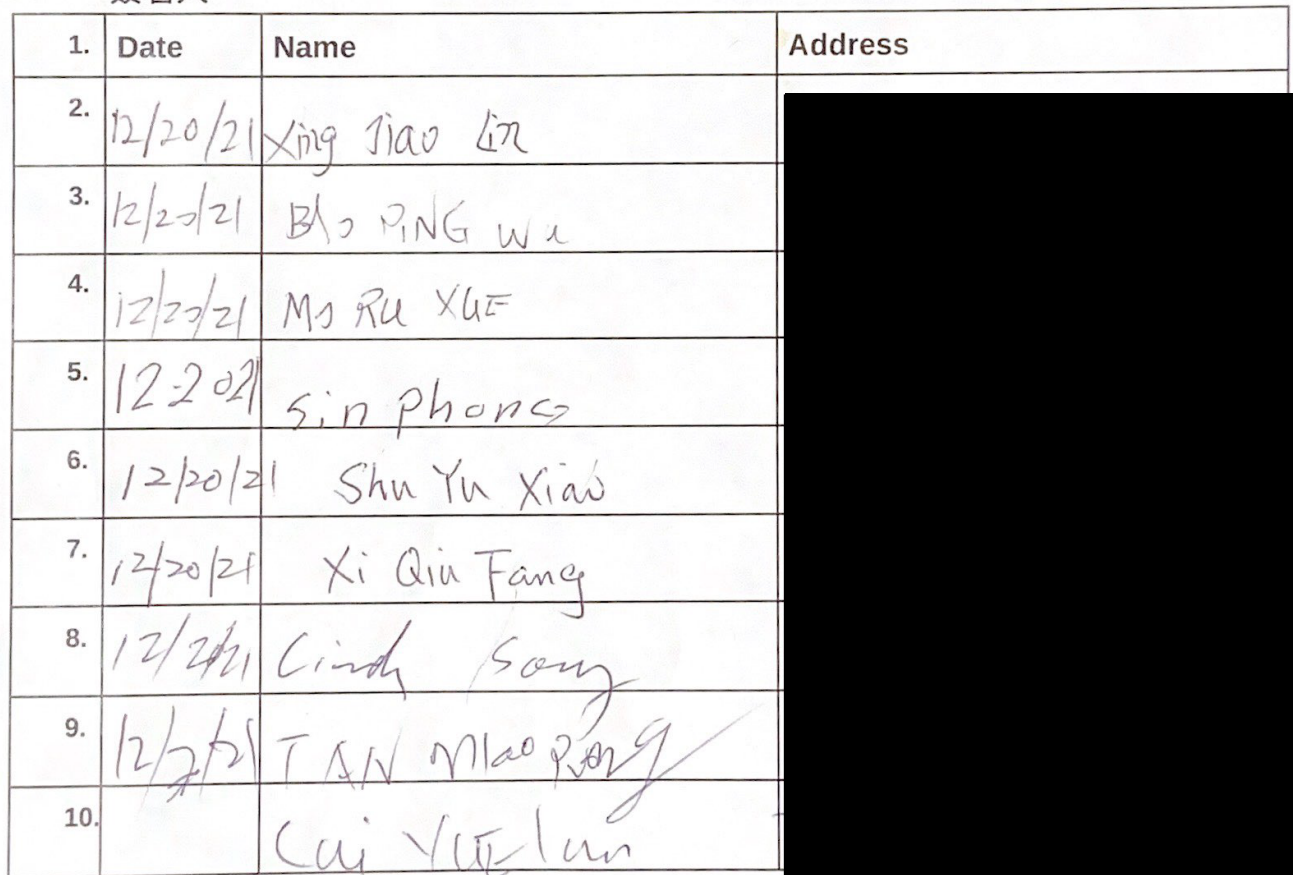 1. Date Name Address
2. 12/20/21 Xing Jiao Lin
3. 12/20/21 BAo PiNG Wu
4. 12/20/21 Mo Ru XUE
5. 12-2021 Sin Phong
6. 12/20/21 Shu Yu Xiao
7. 12/20/21 Xi Qiu Fang
8. 12/20/21 Cindy Song
9. TAN Miao
10. Cai YUE lun